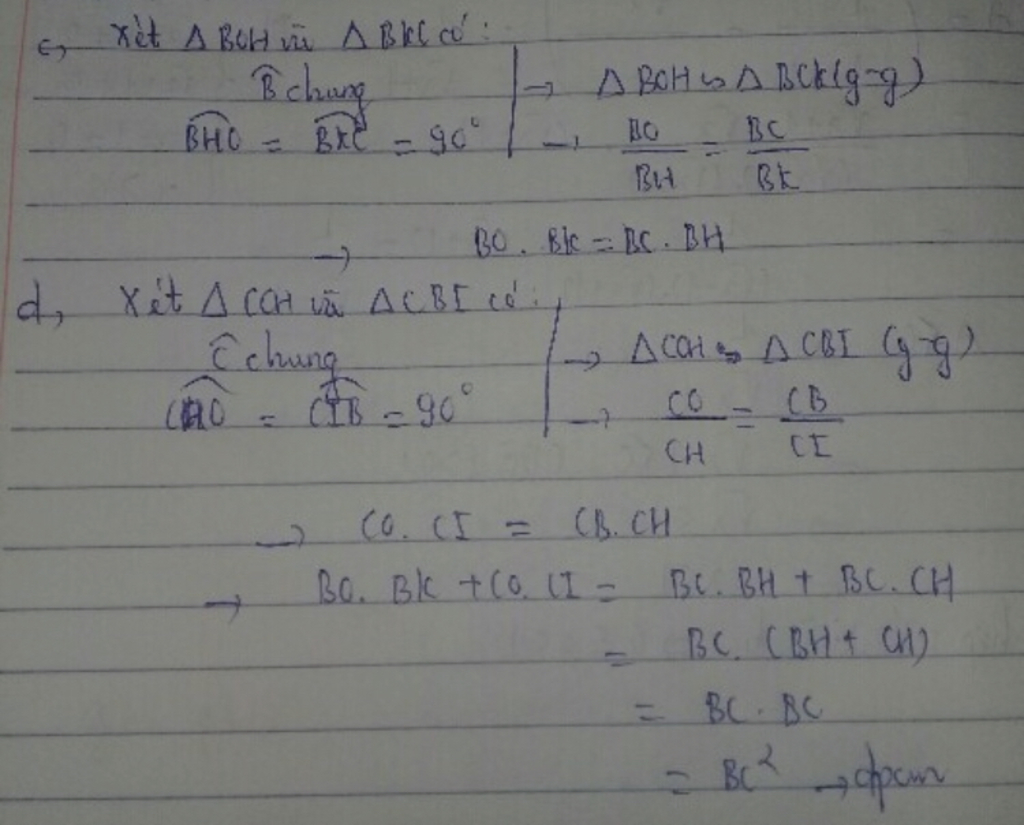 c, Xét Δ BOH và Δ BKC có:
B̂ chung | → Δ BOH ∽ Δ BCK (g-g)
BHO = BKC = 90° | → BO/BH = BC/BK
→ BO. BK = BC. BH
d, Xét Δ COH và Δ CBI có:
Ĉ chung | → Δ COH ∽ Δ CBI (g-g)
CHO = CIB = 90° | → CO/CH = CB/CI
→ CO. CI = CB. CH
→ BO. BK + CO. CI = BC. BH + BC. CH
= BC. (BH + CH)
= BC. BC
= BC² → đpcm